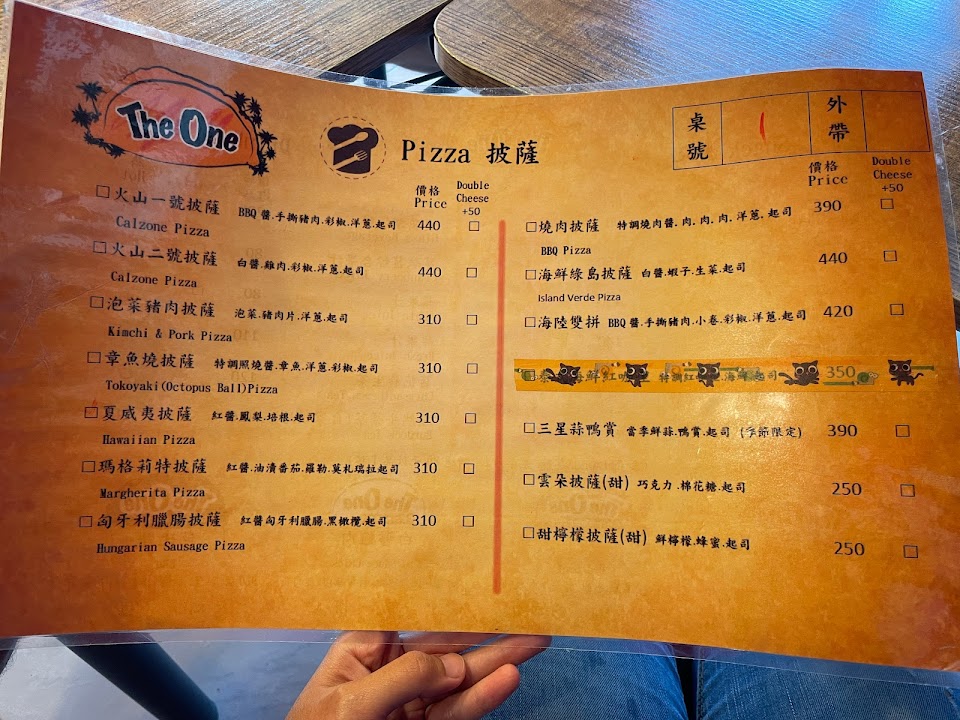 The One
Pizza 披薩
桌號
1
外帶
價格 Price
Double Cheese +50
□火山一號披薩 BBQ醬.手撕豬肉.彩椒.洋蔥.起司 440 □
Calzone Pizza
□火山二號披薩 白醬.雞肉.彩椒.洋蔥.起司 440 □
Calzone Pizza
□泡菜豬肉披薩 泡菜.豬肉片.洋蔥.起司 310 □
Kimchi & Pork Pizza
□章魚燒披薩 特調照燒醬.章魚.洋蔥.彩椒.起司 310 □
Tokoyaki(Octopus Ball)Pizza
□夏威夷披薩 紅醬.鳳梨.培根.起司 310 □
Hawaiian Pizza
□瑪格莉特披薩 紅醬.油漬番茄.羅勒.莫札瑞拉起司 310 □
Margherita Pizza
□匈牙利臘腸披薩 紅醬匈牙利臘腸.黑橄欖.起司 310 □
Hungarian Sausage Pizza
價格 Price
Double Cheese +50
□燒肉披薩 特調燒肉醬.肉.肉.肉.洋蔥.起司 390 □
BBQ Pizza
□海鮮綠島披薩 白醬.蝦子.生菜.起司 440 □
Island Verde Pizza
□海陸雙拼 BBQ醬.手撕豬肉.小卷.彩椒.洋蔥.起司 420 □
海鮮紅 特調紅 海鮮.起司 350
□三星蒜鴨賞 當季鮮蒜.鴨賞.起司 (季節限定) 390 □
□雲朵披薩(甜) 巧克力.棉花糖.起司 250 □
□甜檸檬披薩(甜) 鮮檸檬.蜂蜜.起司 250 □